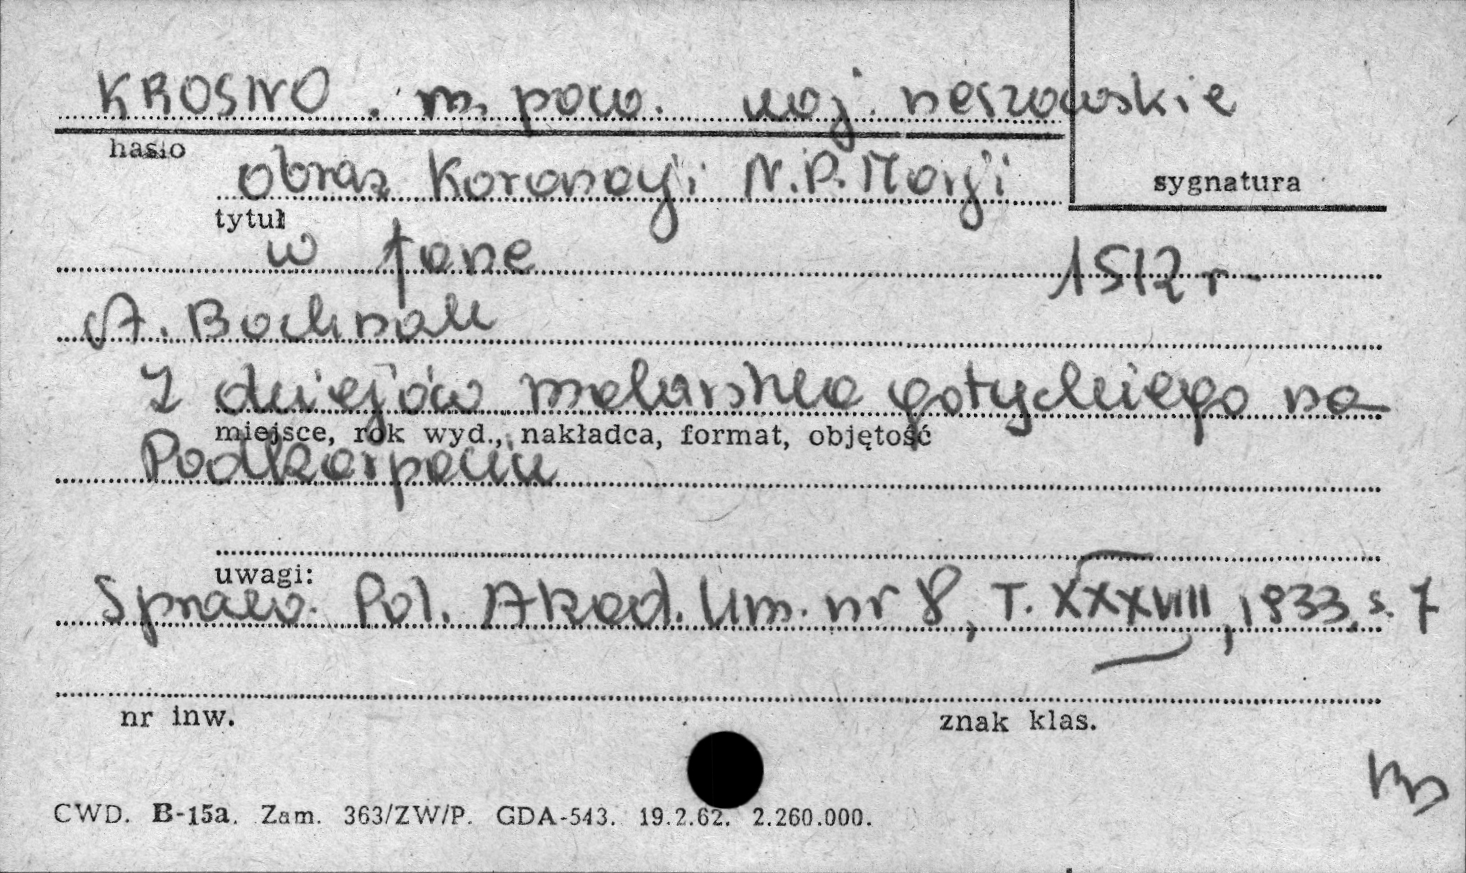 KROSNO. m. pow. woj. rzeszowskie
hasło
obraz Koronacji N.P. Marji
sygnatura
tytuł
w farze 1512 r.
A. Bochnak
Z dziejów malarstwa gotyckiego na
miejsce, rok wyd., nakładca, format, objętość
Podkarpaciu
uwagi:
Spraw. Pol. Akad. Um. nr 8, T. XXXVIII, 1933, s. 7
nr inw. znak klas.
CWD. B-15a. Zam. 363/ZW/P. GDA-543. 19.2.62. 2.260.000.